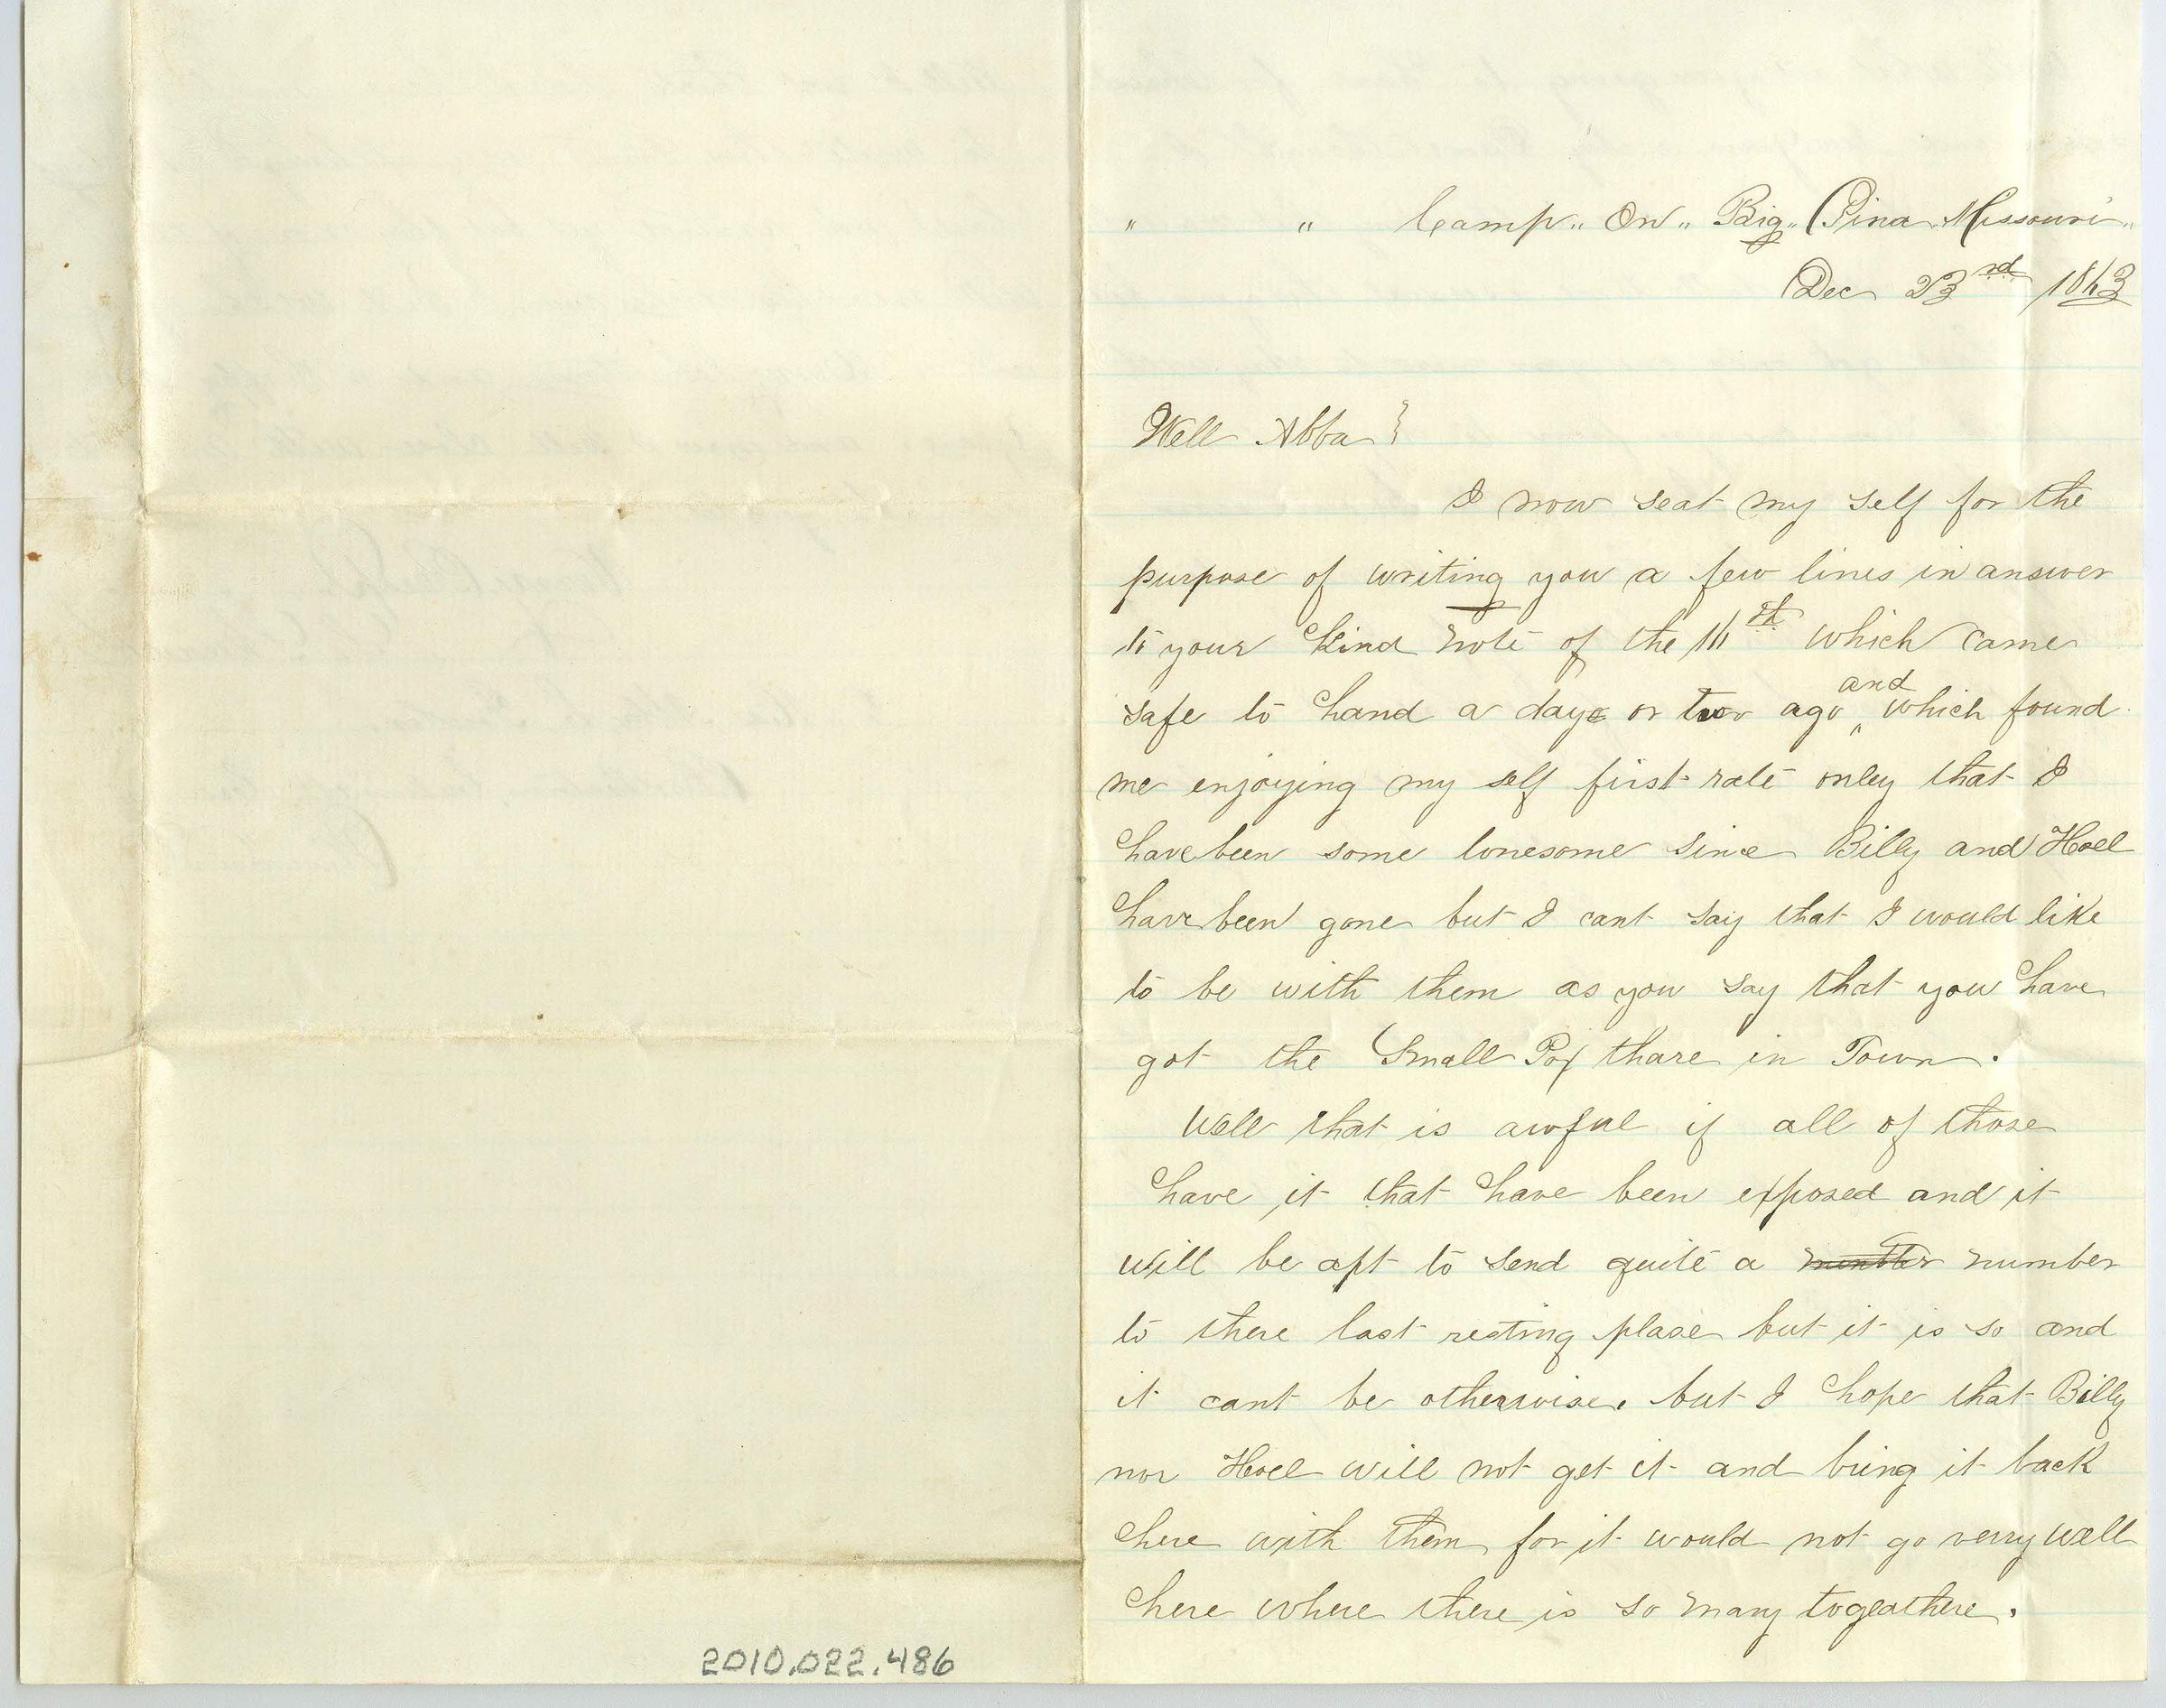 " " Camp " On " Big " Pina Missouri "
Dec 23rd 1863
Well Abba }
I now seat my self for the
purpose of writing you a few lines in answer
to your kind note of the 16th which came
safe to hand a day or two ago and which found
me enjoying my self first rate onley that I
have been some lonesome since Billy and Hoel
have been gone but I cant say that I would like
to be with them as you say that you have
got the Small Pox thare in Town.
Well that is awful if all of those
have it that have been exposed and it
will be apt to send quite a number
to there last resting plase but it is so and
it cant be otherwise. but I hope that Billy
nor Hoel will not get it and bring it back
here with them for it would not go verry well
here where there is so many togeathere.
2010.022.486